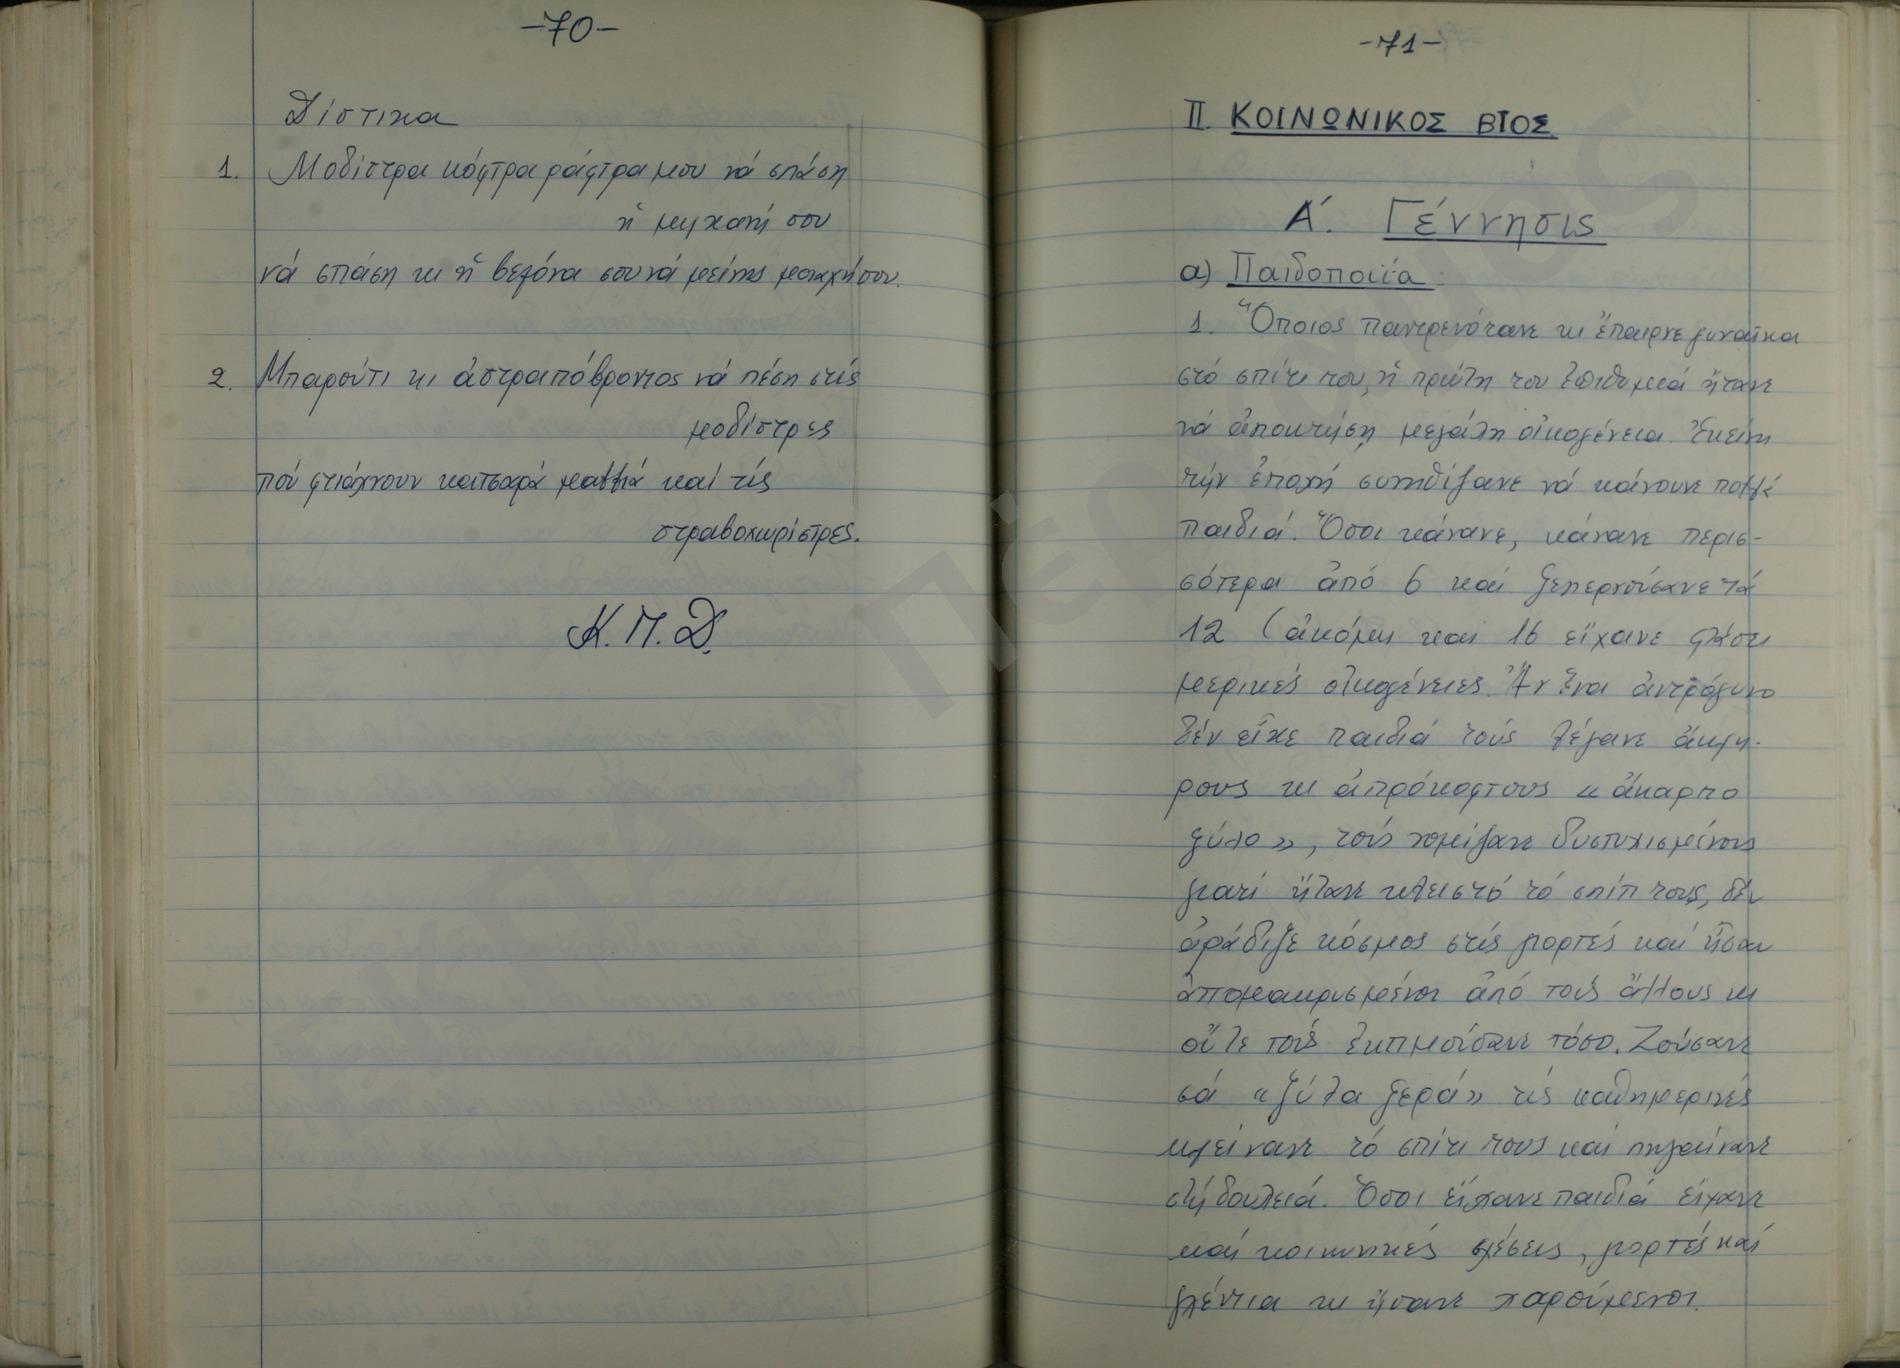 -70-
Δίστιχα
1. Μοδίστρα κόφτρα ράφτρα μου νά σπάση
ἡ μηχανή σου
νά σπάση κι ἡ βελόνα σου νά μείνης μοναχή σου.
2. Μπαρούτι κι ἀστραπόβροντος νά πέση στίς
μοδίστρες
πού φτιάχνουν κατσαρά μαλλιά καί τίς
στραβοχωρίστρες.
Κ.Π.Δ.
-71-
ΙΙ. ΚΟΙΝΩΝΙΚΟΣ ΒΙΟΣ
Α΄. Γέννησις
α) Παιδοποιΐα:
1. Ὅποιος παντρενότανε κι ἔπαιρνε γυναῖκα
στό σπίτι του, ἡ πρώτη του ἐπιθυμιά ἤτανε
νά ἀποκτήση μεγάλη οἰκογένεια. Ἐκείνη
τήν ἐποχή συνηθίζανε νά κάνουνε πολλά
παιδιά. Ὅσοι κάνανε, κάνανε περισ-
σότερα ἀπό 6 καί ξεπερνούσανε τά
12 (ἀκόμη και 16 εἴχανε φτάσει
μερικές οἰκογένειες. Ἄν ἕνα ἀντρόγυνο
δέν εἶχε παιδιά τούς λέγανε ἄκλη-
ρους κι ἀπρόκοφτους «ἄκαρπο
ξύλο», τούς νομίζανε δυστυχισμένους
γιατί ἤτανε κλειστό τό σπίτι τους, δέν
ἀράδιζε κόσμος στίς γιορτές καί ἦσαν
ἀπομακρυσμένοι ἀπό τούς ἄλλους κι
οὔτε τούς ἐκτιμούσανε τόσο. Ζούσανε
σά «ξύλα ξερά» τίς καθημερινές
κλείνανε τό σπίτι τους καί πηγαίνανε
στή δουλειά. Ὅσοι εἴχανε παιδιά εἴχανε
καί κοινωνικές σχέσεις, γιορτές καί
γλέντια κι ἤσανε χαρούμενοι.